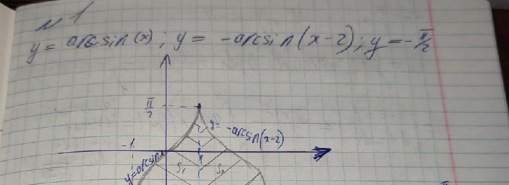 №1
y = arcsin(x); y = -arcsin(x-2); y = -π/2
π/2
y = -arcsin(x-2)
-1
1
y=arcsin
S₁ S₂